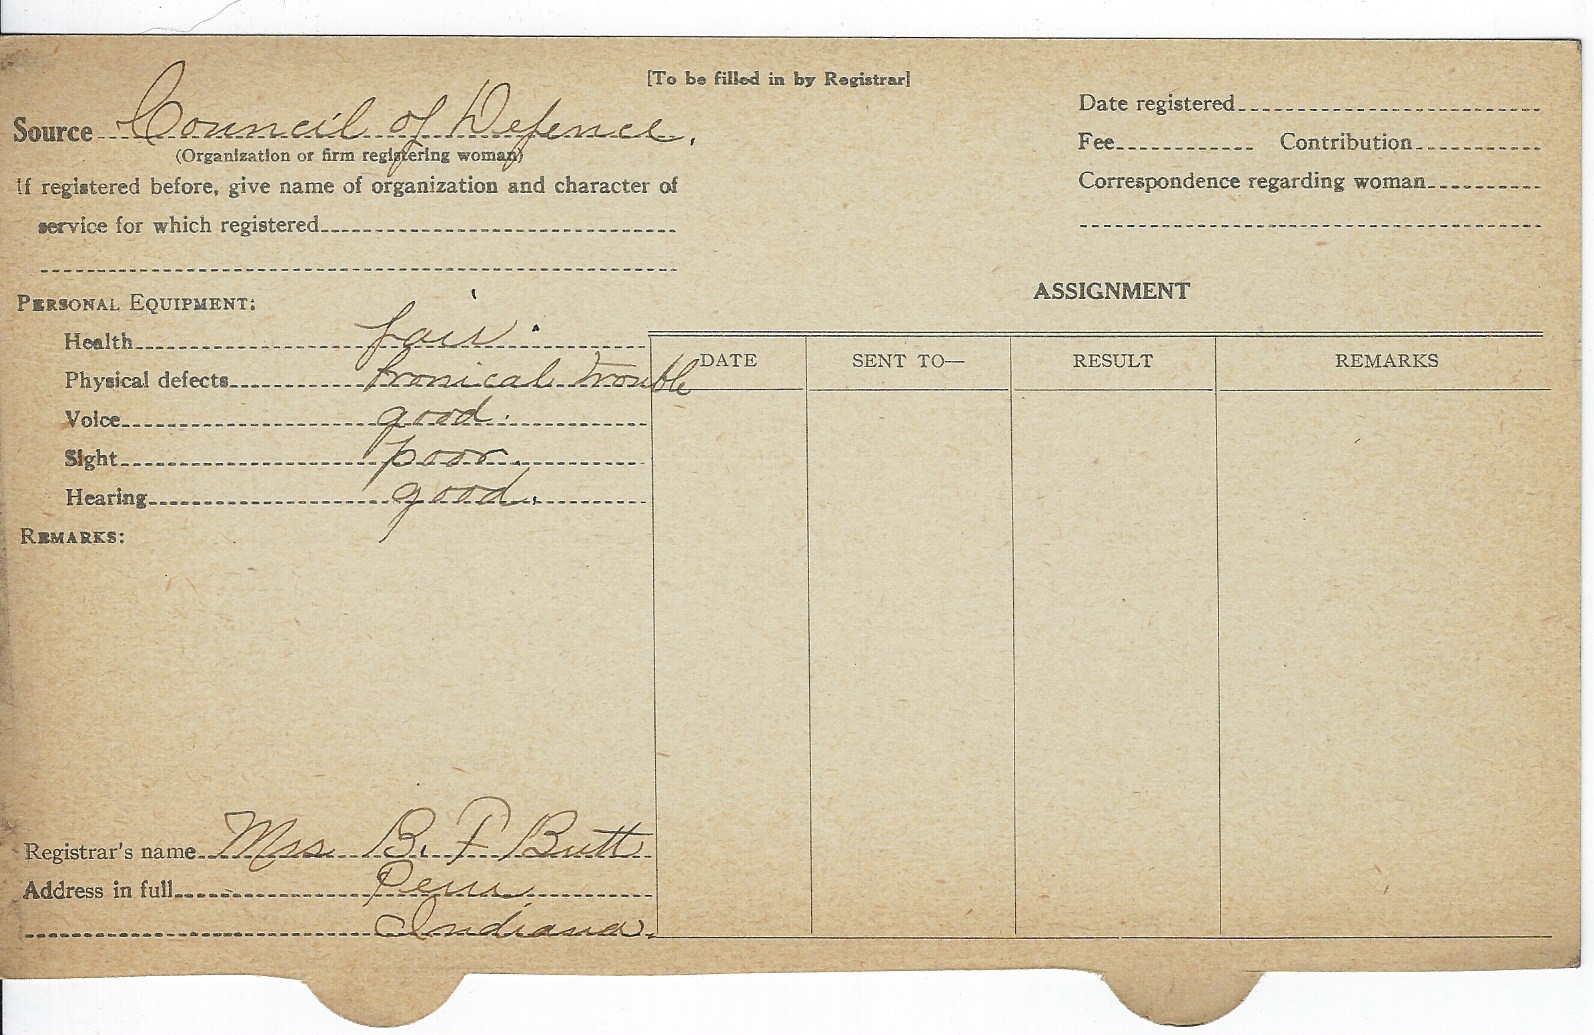 [To be filled in by Registrar]
Source Council of Defence.
(Organization or firm registering woman)
If registered before, give name of organization and character of
service for which registered
Date registered
Fee Contribution
Correspondence regarding woman
PERSONAL EQUIPMENT:
Health fair.
Physical defects bronical trouble
Voice good.
Sight poor.
Hearing good.
REMARKS:
ASSIGNMENT
DATE SENT TO— RESULT REMARKS
Registrar's name Mrs B. F Butt
Address in full Peru,
Indiana.